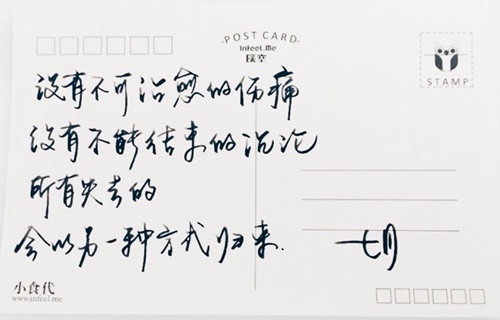 POST CARD
InFeeL.Me
STAMP
没有不可治愈的伤痛
没有不能结束的沉沦
所有失去的
会以另一种方式归来.
七月
小食代
www.infeel.me